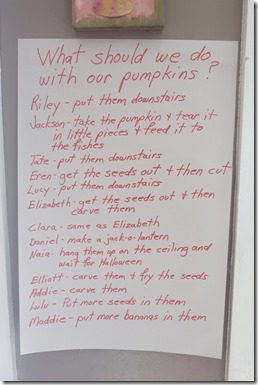 What should we do
with our pumpkins?
Riley - put them downstairs
Jackson - take the pumpkin & tear it
in little pieces & feed it to
the fishes
Tate - put them downstairs
Eren - get the seeds out & then cut
Lucy - put them downstairs
Elizabeth - get the seeds out & then
carve them
Clara - same as Elizabeth
Daniel - make a jack-o-lantern
Naia - hang them up on the ceiling and
wait for Halloween
Elliott - carve them & fry the seeds
Addie - carve them
Lulu - Put more seeds in them
Maddie - put more bananas in them